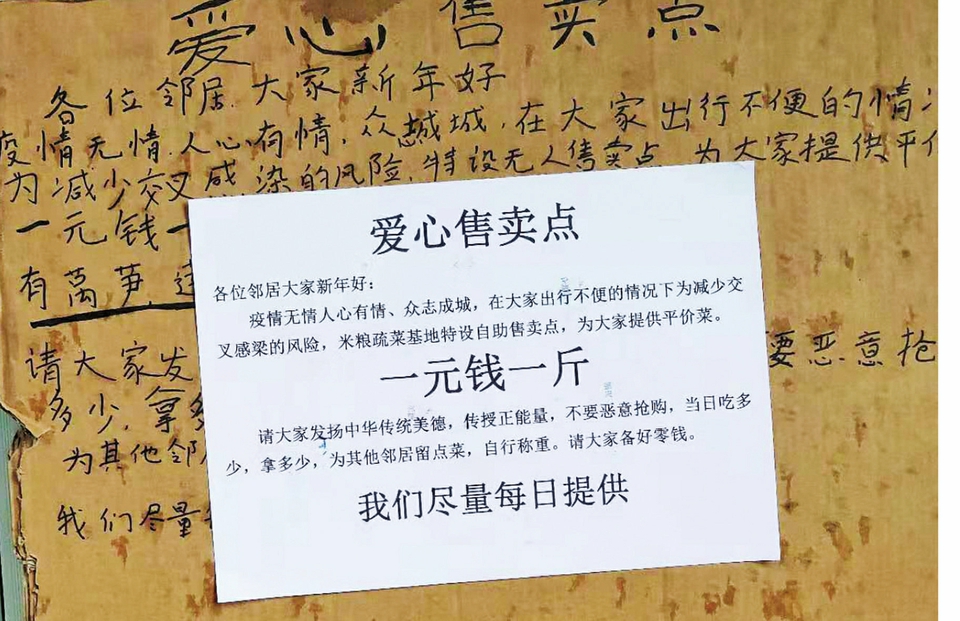 爱心售卖点
各位邻居 大家新年好
疫情无情.人心有情,众城,在大家出行不便的情
为减少交叉感染的风险.特设无人售卖点 为大家提供平
一元钱一
有莴笋
请大家发 要恶意抢
多少,拿多
为其他邻
我们尽量
爱心售卖点
各位邻居大家新年好：
疫情无情人心有情、众志成城，在大家出行不便的情况下为减少交
叉感梁的风险，米粮疏菜基地特设自助售卖点，为大家提供平价菜。
一元钱一斤
请大家发扬中华传统美德，传授正能量，不要恶意抢购，当日吃多
少，拿多少，为其他邻居留点菜，自行称重。请大家备好零钱。
我们尽量每日提供